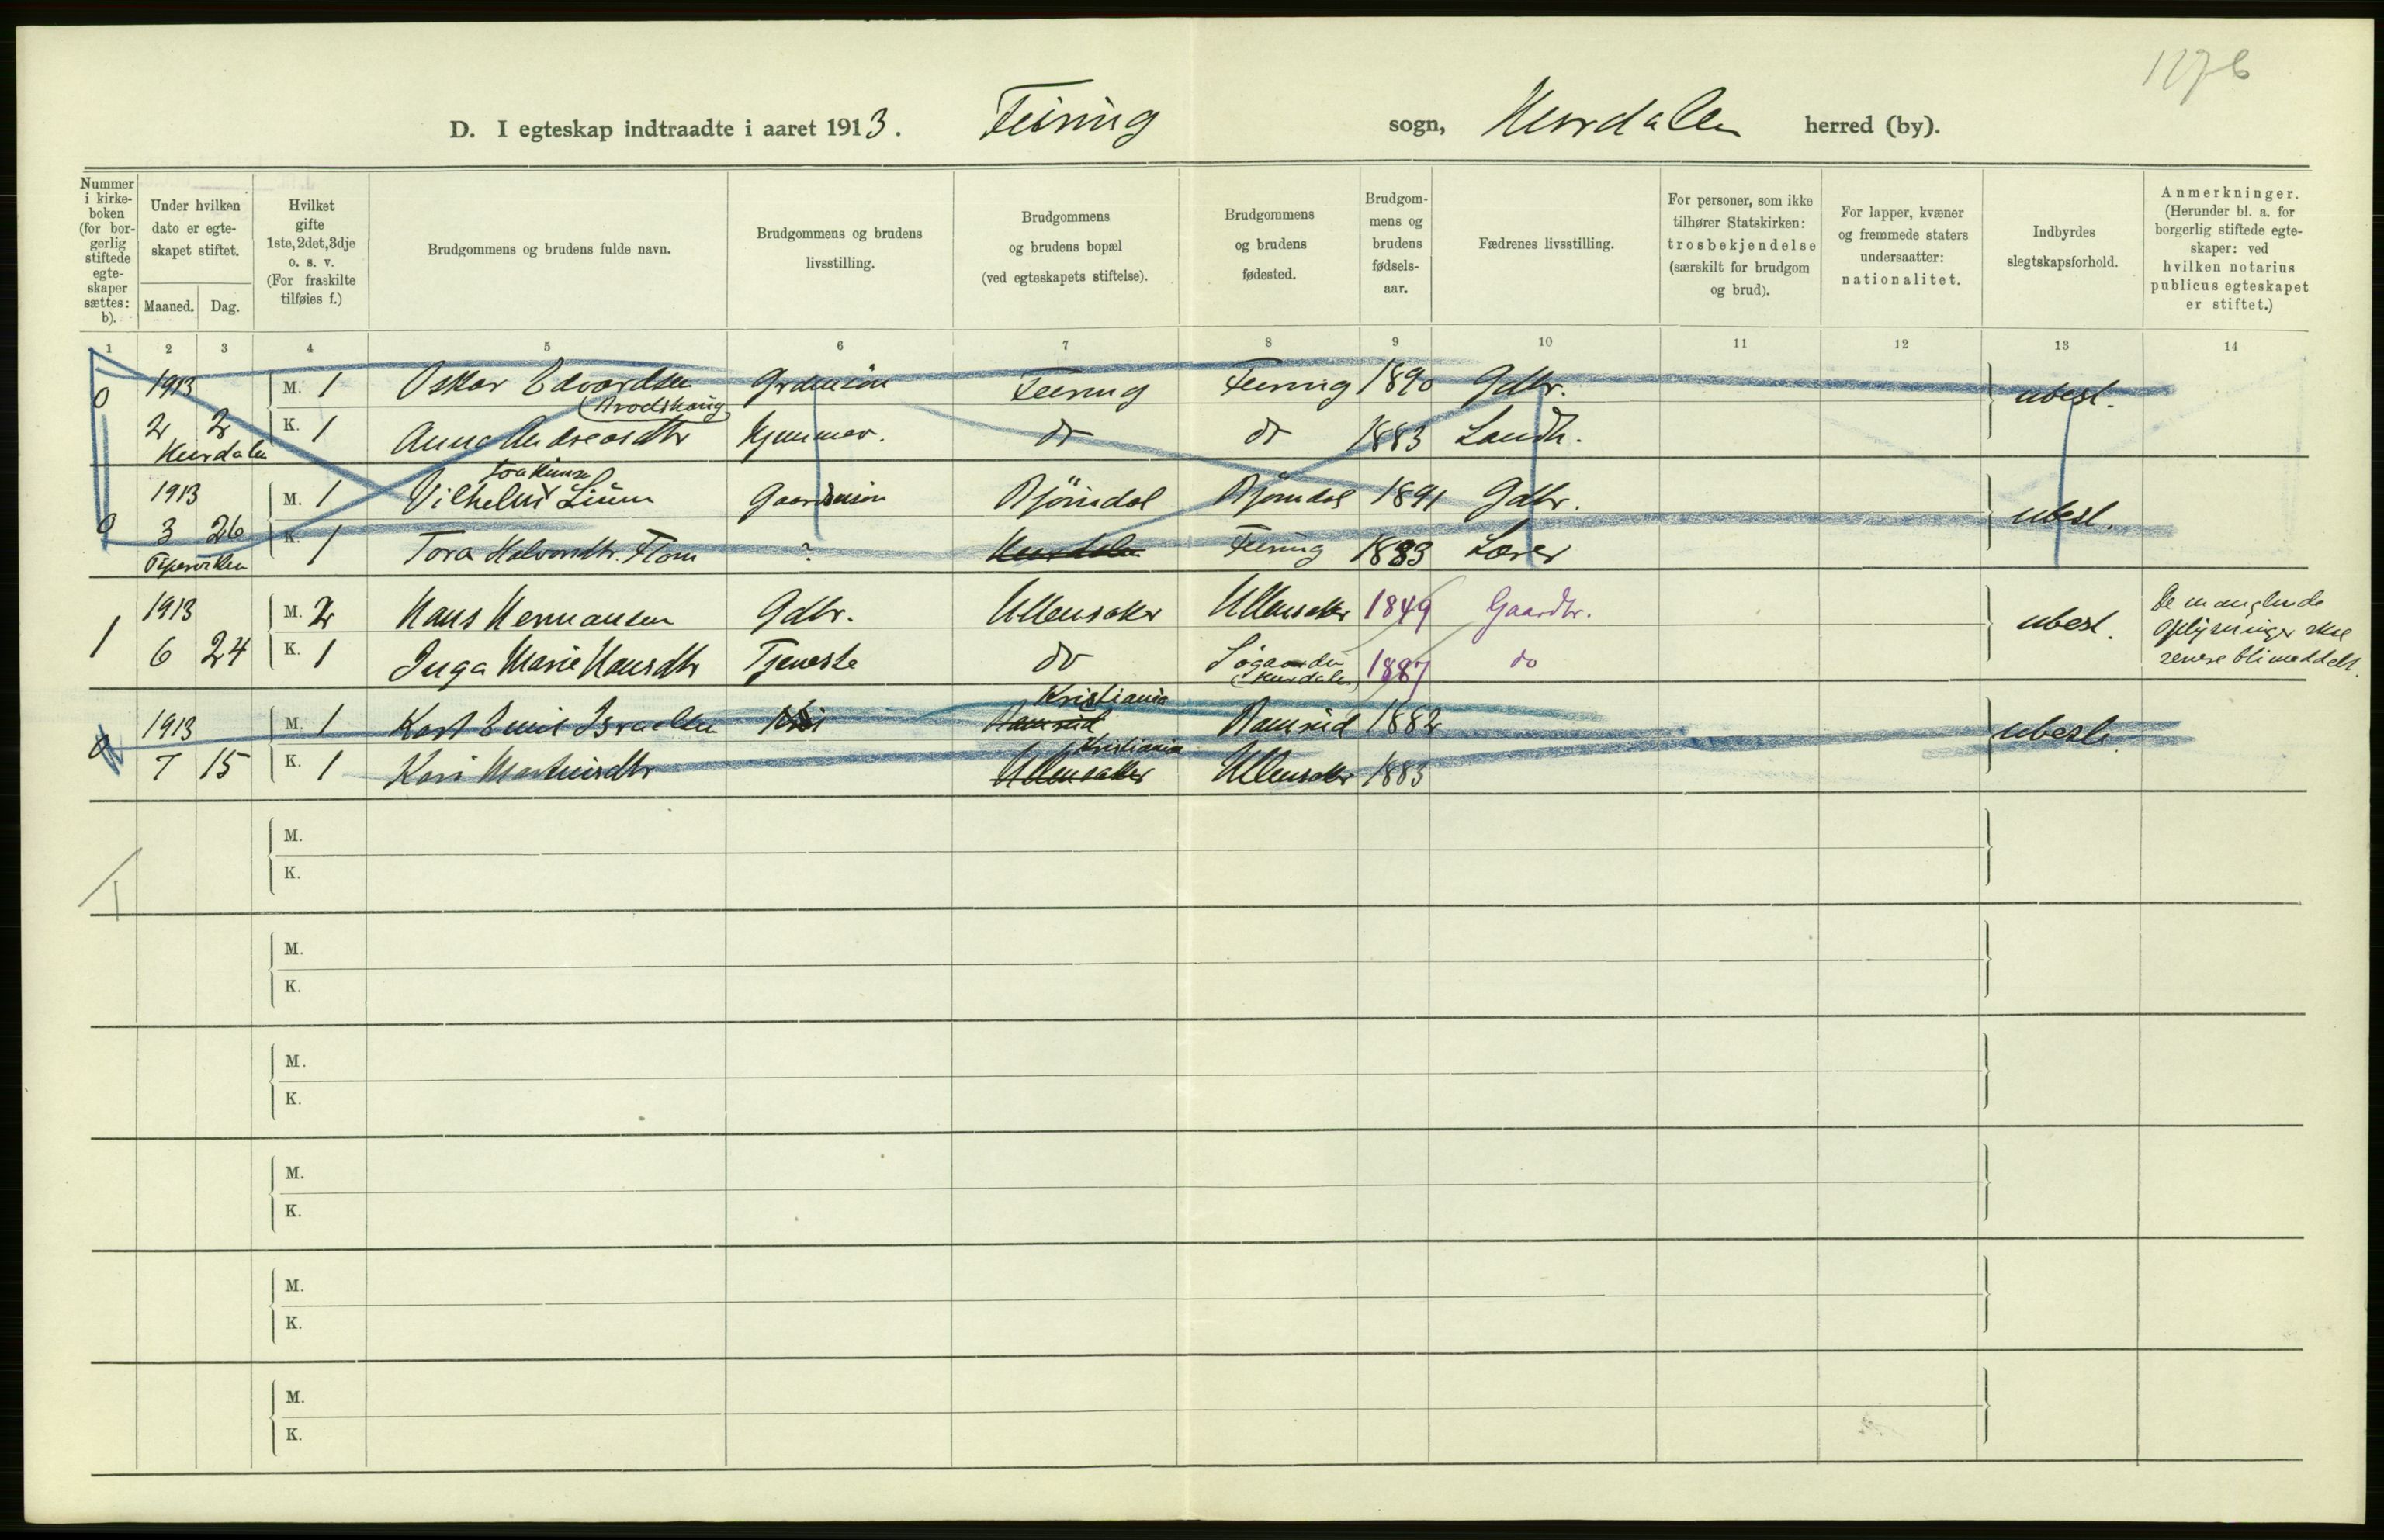 1276
D. I egteskap indtraadte i aaret 1913. Feiring sogn, Hurdalen herred (by).
Nummer i kirke- boken (for bor- gerlig stiftede egte- skaper sættes: b).
Under hvilken dato er egte- skapet stiftet.
Maaned. Dag.
Hvilket gifte 1ste, 2det, 3dje o. s. v. (For fraskilte tilføies f.)
Brudgommens og brudens fulde navn.
Brudgommens og brudens livsstilling.
Brudgommens og brudens bopæl (ved egteskapets stiftelse).
Brudgommens og brudens fødested.
Brudgom- mens og brudens fødsels- aar.
Fædrenes livsstilling.
For personer, som ikke tilhører Statskirken: trosbekjendelse (særskilt for brudgom og brud).
For lapper, kvæner og fremmede staters undersaatter: nationalitet.
Indbyrdes slegtskapsforhold.
Anmerkninger. (Herunder bl. a. for borgerlig stiftede egte- skaper: ved hvilken notarius publicus egteskapet er stiftet.)
1 2 3 4 5 6 7 8 9 10 11 12 13 14
0 1913 M. 1 Oskar Edvardsen Feiring Feiring 1890 Gdbr. ubesl.
2 2 K. 1 Anna Andreasdtr do do 1883 Landh.
Hurdalen
1913 M. 1 Vilhelm Gaardmison Bjömdal Bjömdal 1891 Gdbr.
0 3 26 K. 1 Tora Halvorsdtr. ? Hurdalen Feiring 1883 Lærer ubesl.
Piperviken
1913 M. 2 Hans Hermansen Gdbr. Ullensaker Ullensaker 1849 Gaardbr. ubesl. De manglende
1 6 24 K. 1 Inga Marie Hansdtr Tjeneste do 1887 do oplysninger skal
(Hurdalen) senere bli meddelt.
Kristiania
0 1913 M. 1 Karl Emil Israelsen Ramsrud Ramsrud 1882 ubesl.
Kristiania
7 15 K. 1 Kari Martinisdtr Ullensaker Ullensaker 1883
M.
K.
M.
K.
M.
K.
M.
K.
M.
K.
M.
K.